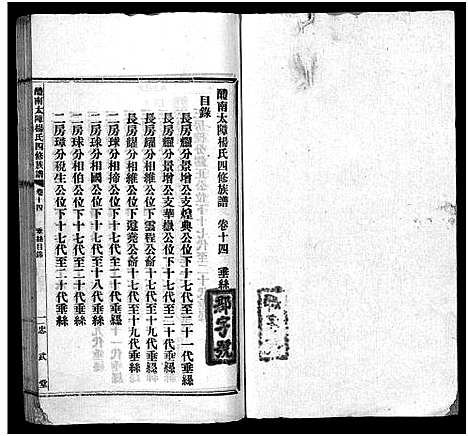 醴南太障楊氏四修族譜 卷十四 垂絲
目錄
長房耀分景增公支煌典公位下十七代至二十一代垂絲
長房耀分景增公支華嶽公位下十七代至二十代垂絲
長房耀分相維公位下雲程公斋十七代至十九代垂絲
長房耀分相維公位下遐堯公斋十七代至十九代垂絲
二房球分相掃公位下十七代至二十代垂絲
二房球分相國公位下十七代至十八代垂絲
二房球分相伯公位下十七代至十九代垂絲
二房璋分税生公位下十七代至二十代垂絲
醴南太障楊氏四修族譜
卷十四
垂絲目錄
一
忠武堂
鄒字號